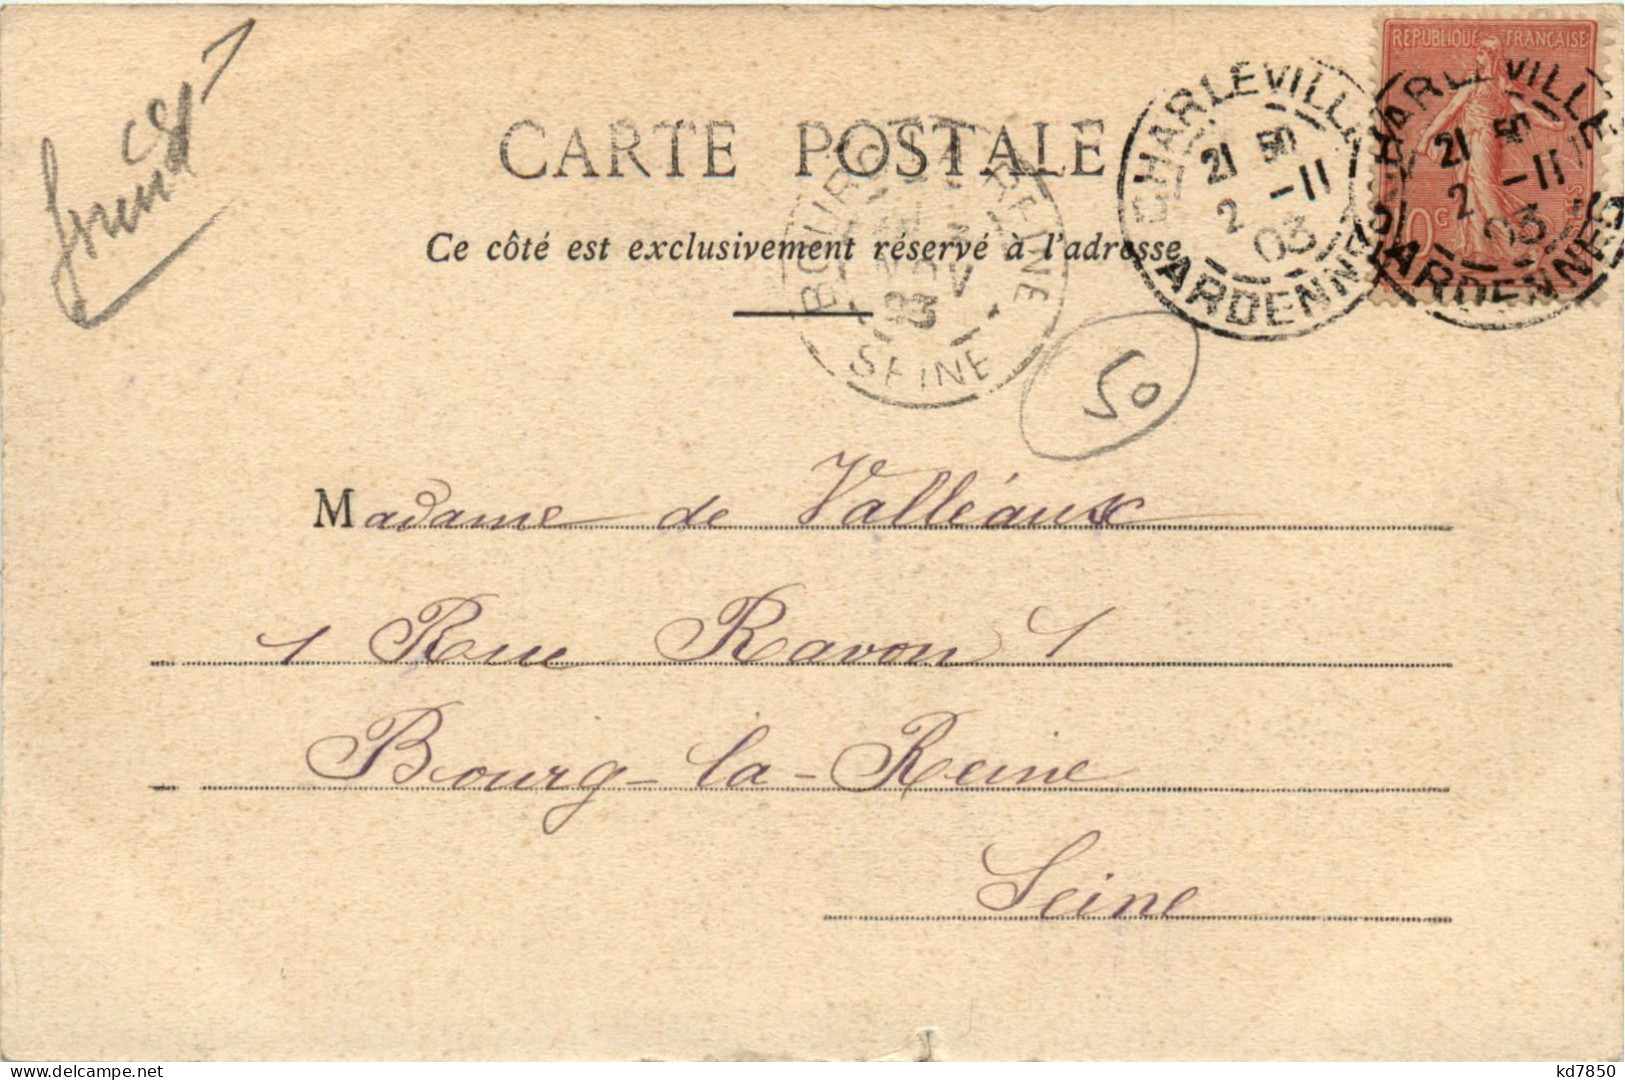 REPUBLIQUE FRANÇAISE
CARTE POSTALE
CHARLEVILLE
21 50
2 -11
03
ARDENNES
CHARLEVILLE
21 50
2 -11
03
ARDENNES
Ce côté est exclusivement réservé à l'adresse
03
SEINE
50
Madame de Valléaux
1 Rue Ravon 1
Bourg-la-Reine
Seine
kd7850